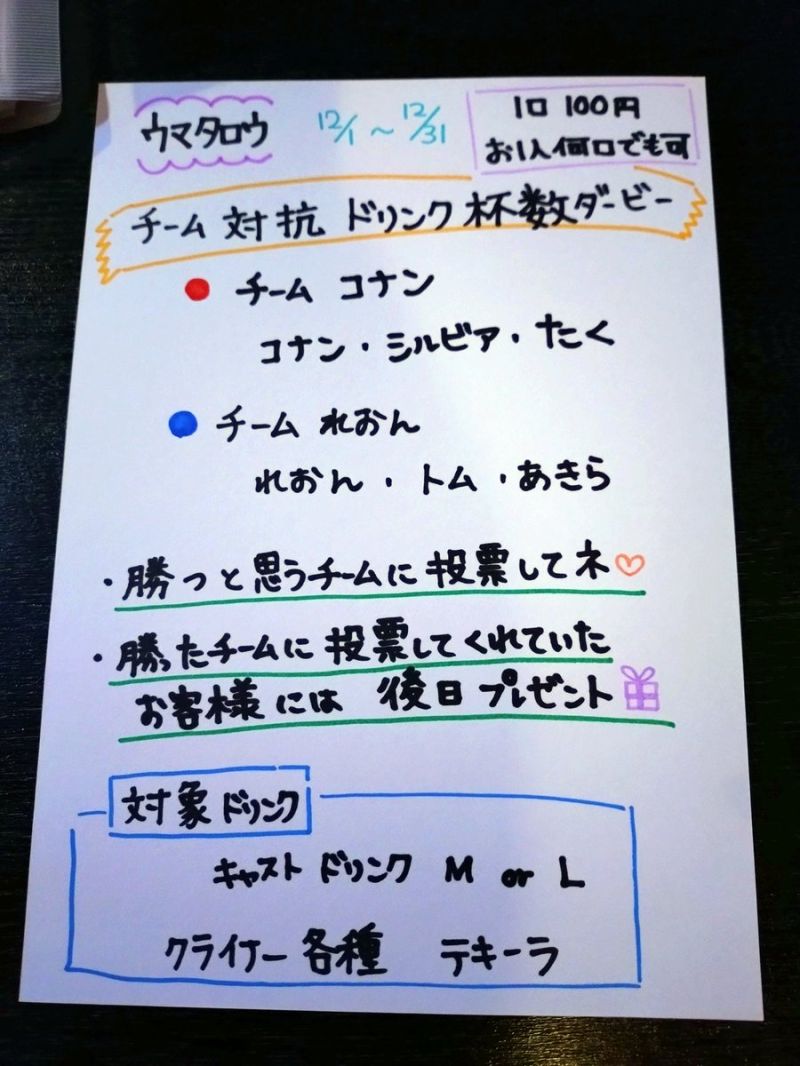 ウマタロウ 12/1 ~ 12/31
1口 100円
お1人何口でも可
チーム 対抗 ドリンク 杯数ダービー
チーム コナン
コナン・シルビア・たく
チーム れおん
れおん・トム・あきら
・勝つと思うチームに投票してネ♡
・勝ったチームに投票してくれていた
お客様には 後日プレゼント
対象ドリンク
キャストドリンク M or L
クライナー各種 テキーラ